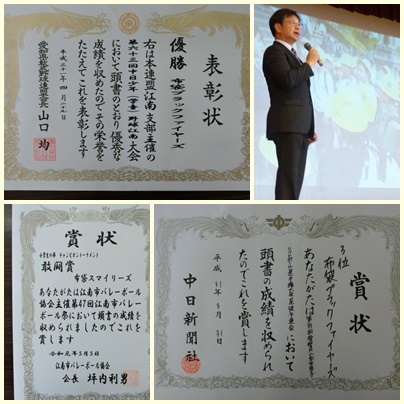 表彰状
優勝 布袋ブラックファイヤーズ
右は本連盟江南支部主催の
において頭書のとおり優秀な
成績を収めたのでその栄誉を
たたえてこれを表彰します
平成三十一年四月二十九日
山口 均
賞状
敢闘賞
布袋スマイリーズ
あなたがたは江南市バレーボール
協会主催第47回江南市バレー
ボール祭において頭書の成績を
収められましたのでこれを賞
します
令和元年5月5日
江南市バレーボール協会
会長 坪内利男
賞状
3位
布袋ブラックファイヤーズ
あなたがたは
において
頭書の成績を収められ
たのでこれを賞します
中日新聞社